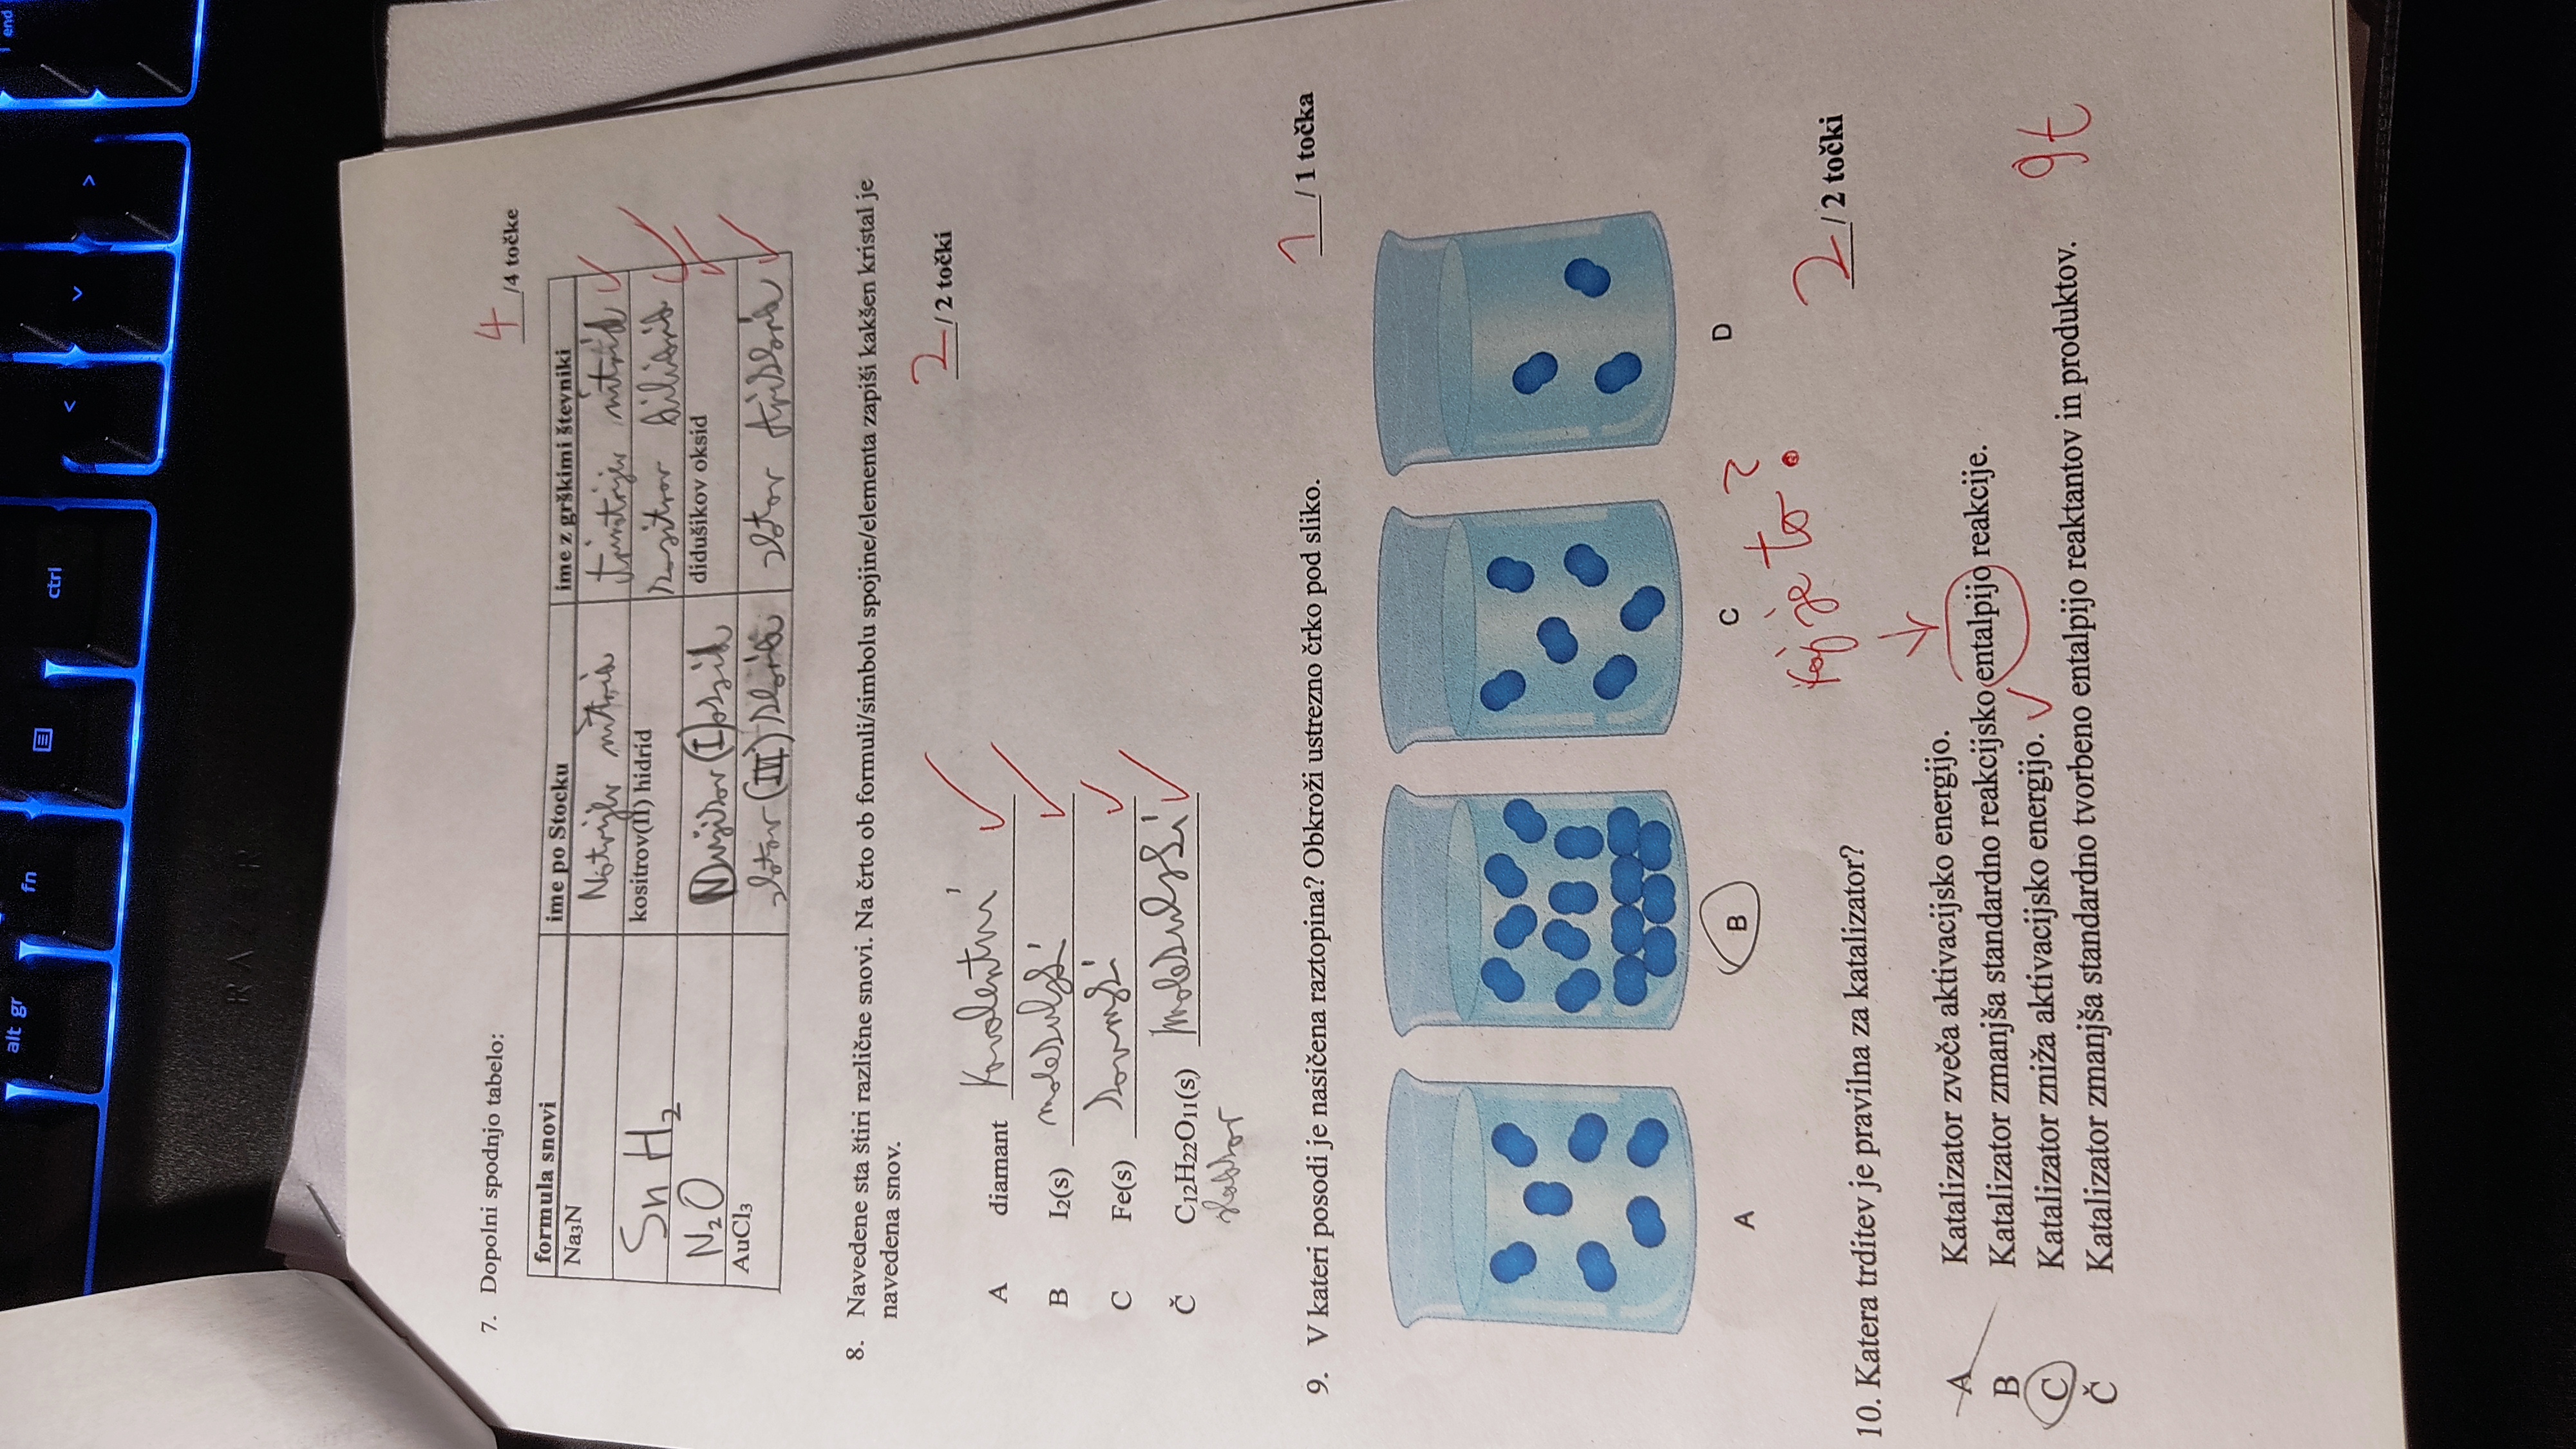 alt gr
fn
ctrl
end
<
>
RAZER
7. Dopolni spodnjo tabelo:
4/4 točke
formula snovi ime po Stocku ime z grškimi števniki
Na₃N Natrijev nitrid trinatrijev nitrid
SnH₂ kositrov(II) hidrid kositrov dihidrid
N₂O Dušikov (I) oksid didušikov oksid
AuCl₃ zlatov (III) klorid zlatov triklorid
8. Navedene sta štiri različne snovi. Na črto ob formuli/simbolu spojine/elementa zapiši kakšen kristal je
navedena snov.
2/ 2 točki
A diamant Kovalentni
B I₂(s) molekulski
C Fe(s) kovinski
Č C₁₂H₂₂O₁₁(s) molekulski
9. V kateri posodi je nasičena raztopina? Obkroži ustrezno črko pod sliko.
1/ 1 točka
A B C D
Kaj je to?
2/ 2 točki
10. Katera trditev je pravilna za katalizator?
A Katalizator zveča aktivacijsko energijo.
B Katalizator zmanjša standardno reakcijsko entalpijo reakcije.
C Katalizator zniža aktivacijsko energijo.
Č Katalizator zmanjša standardno tvorbeno entalpijo reaktantov in produktov.
9t